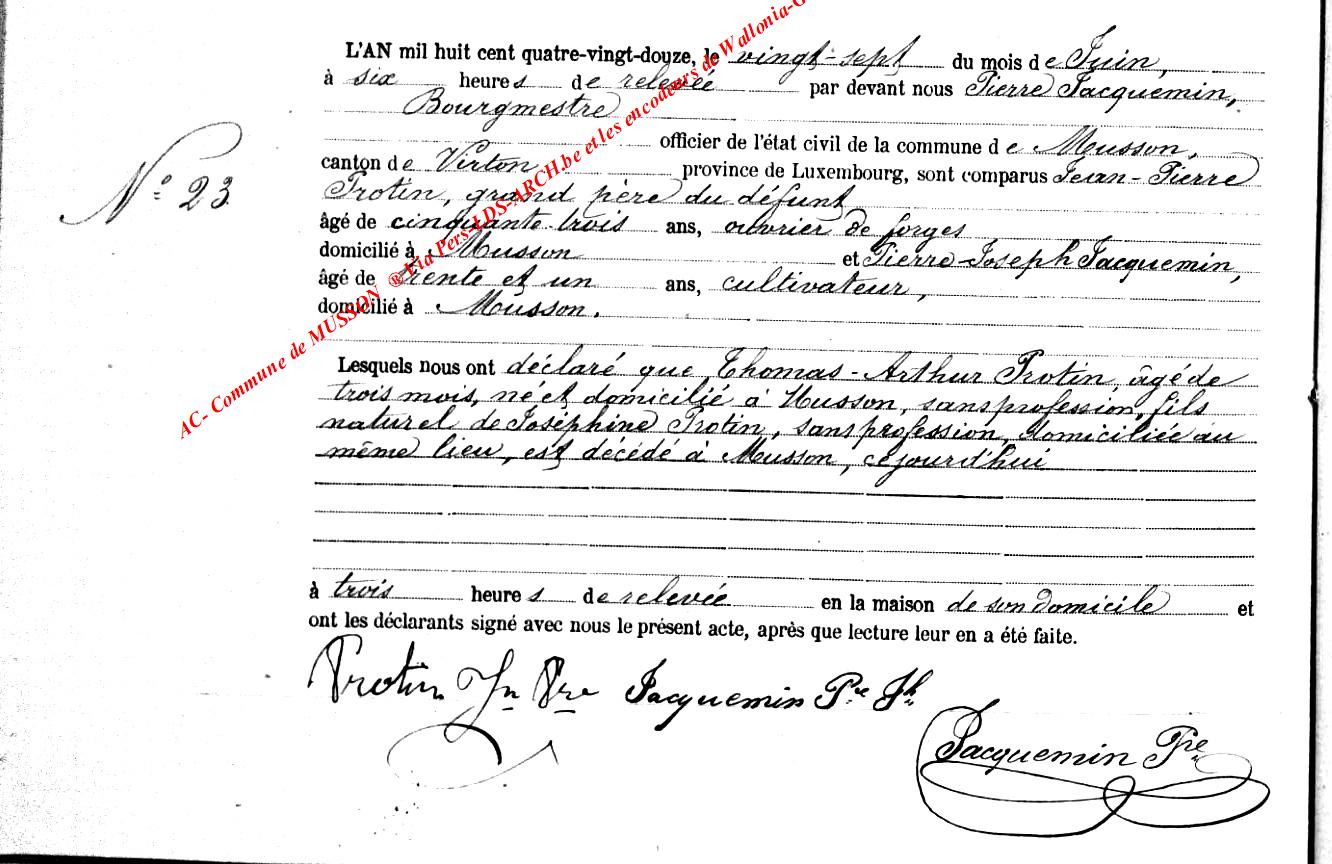 L'AN mil huit cent quatre-vingt-douze, le vingt-sept du mois de Juin,
à six heures de relevée par devant nous Pierre Jacquemin,
Bourgmestre
officier de l'état civil de la commune de Musson,
canton de Virton province de Luxembourg, sont comparus Jean-Pierre
Protin, grand père du défunt
âgé de cinquante trois ans, ouvrier de forges
domicilié à Musson et Pierre-Joseph Jacquemin,
âgé de trente et un ans, cultivateur,
domicilié à Musson.
N° 23
Lesquels nous ont déclaré que Thomas-Arthur Protin, âgé de
trois mois, né et domicilié à Musson, sans profession, fils
naturel de Joséphine Protin, sans profession, domiciliée au
même lieu, est décédé à Musson, cejourd'hui
à trois heures de relevée en la maison de son domicile et
ont les déclarants signé avec nous le présent acte, après que lecture leur en a été faite.
Protin Jn Pre Jacquemin Pre Jh
Jacquemin Pre
AC- Commune de MUSSON ® Via Pers-LDS-ARCH.be et les encodeurs de Wallonia-G